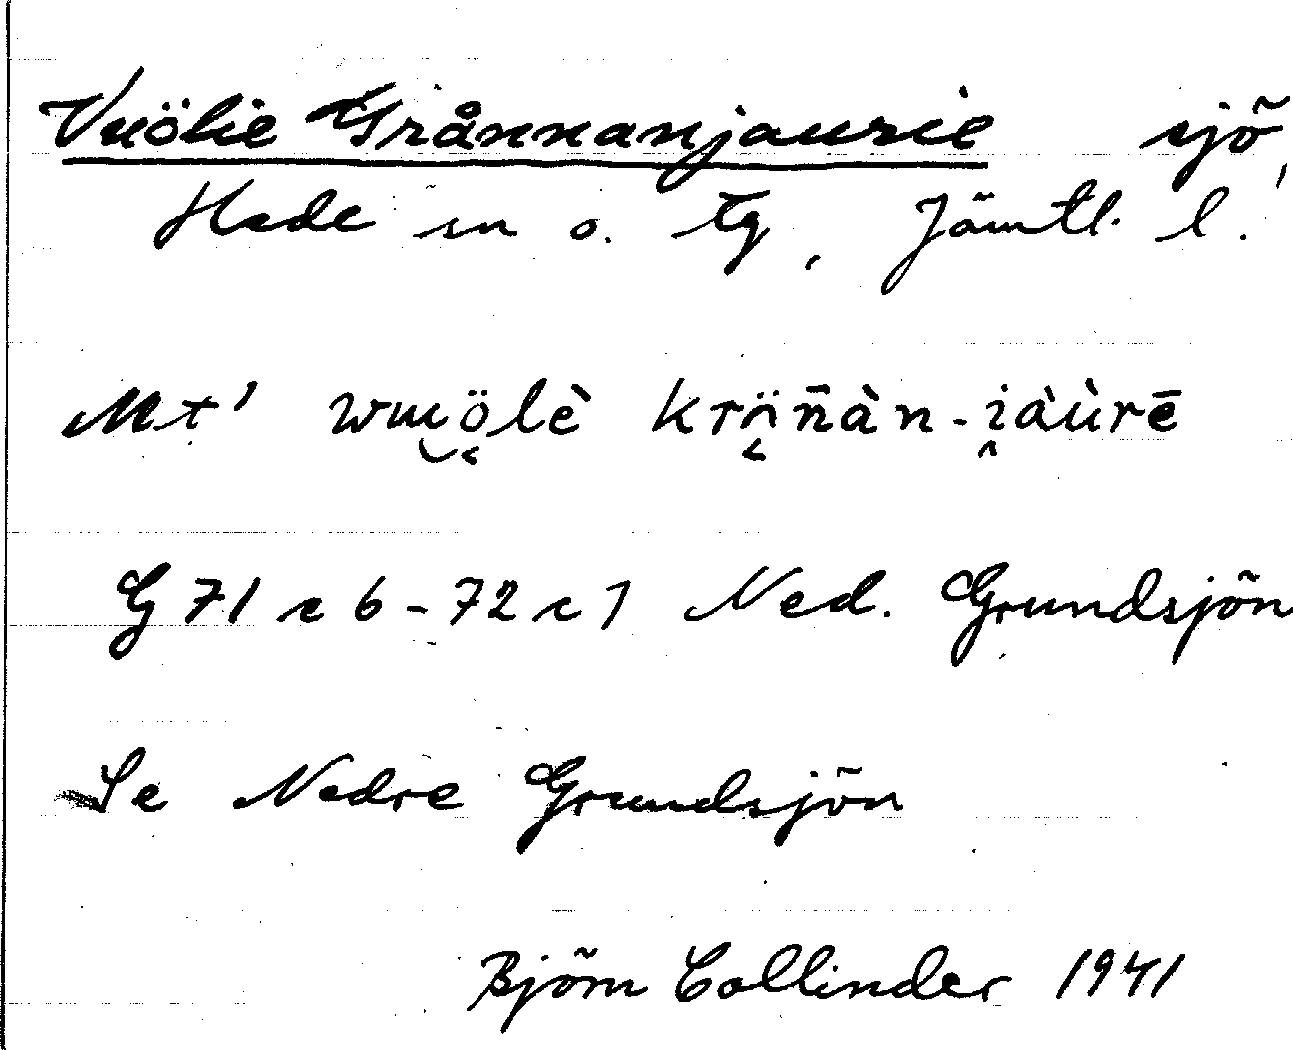 Vuölie Grånnanjaurie sjö,
Hede sn o. tg, Jämtl. l.
Mt' wuu̯ö̜lè krö̜̈n̄àn-i̭àùrē
G 71 c 6 - 72 c 1 Ned. Grundsjön
Se Nedre Grundsjön
Björn Collinder 1941